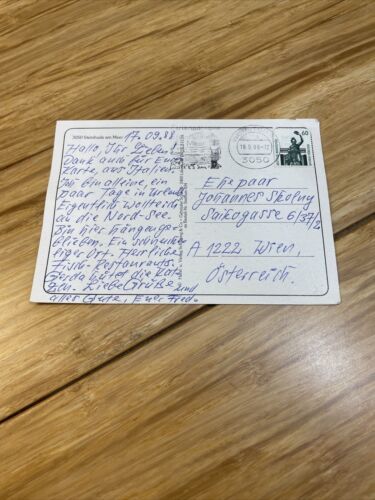 3050 Steinhude am Meer
17.09.88
Hallo, Ihr Lieben!
Dank auch für Eure
Karte, aus Italien.
Ich bin alleine, ein
paar Tage in Urlaub.
Eigentlich wollte ich
an die Nord-See.
Bin hier hängenge-
blieben. Ein schnucke-
liger Ort. Herrliche
Fisch-Restaurants.
Gerda hütet die Kat-
zen. Liebe Grüße und
alles Gute, Euer Fred.
3050
60
Ehepaar
Johannes Skolny
Saikogasse 6/37/2
A 1222 Wien,
Österreich.